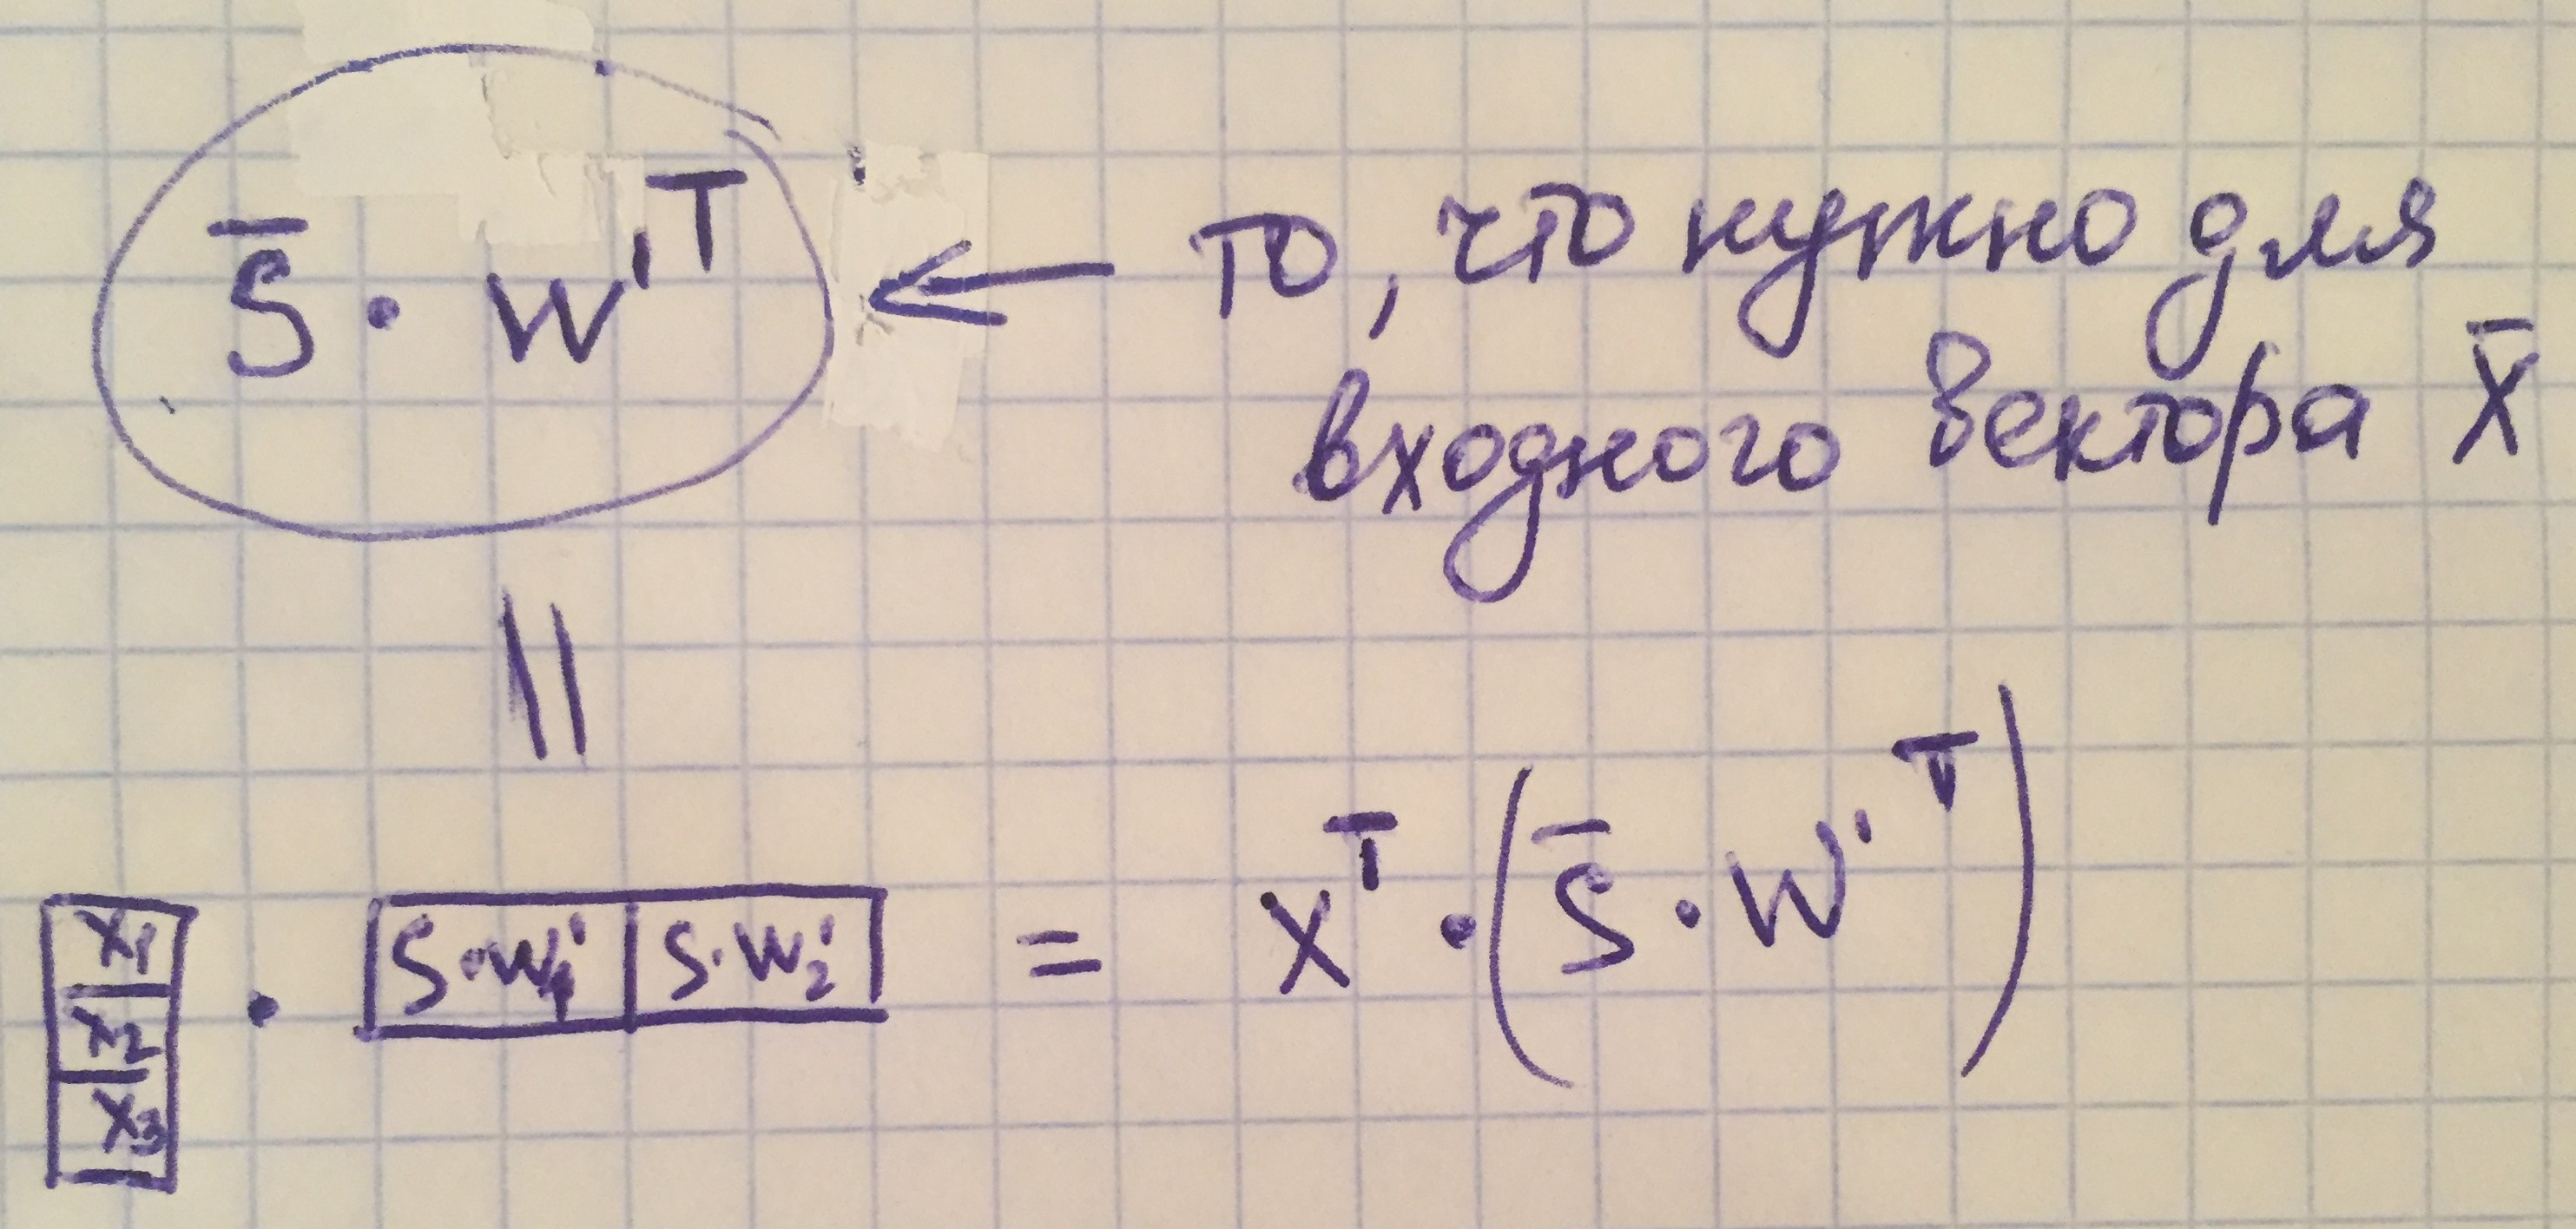 S̄ · W'ᵀ ← то, что нужно для
входного вектора X̄
||
X₁ X₂ X₃ · S·W₁' S·W₂' = Xᵀ · (S̄ · W'ᵀ)